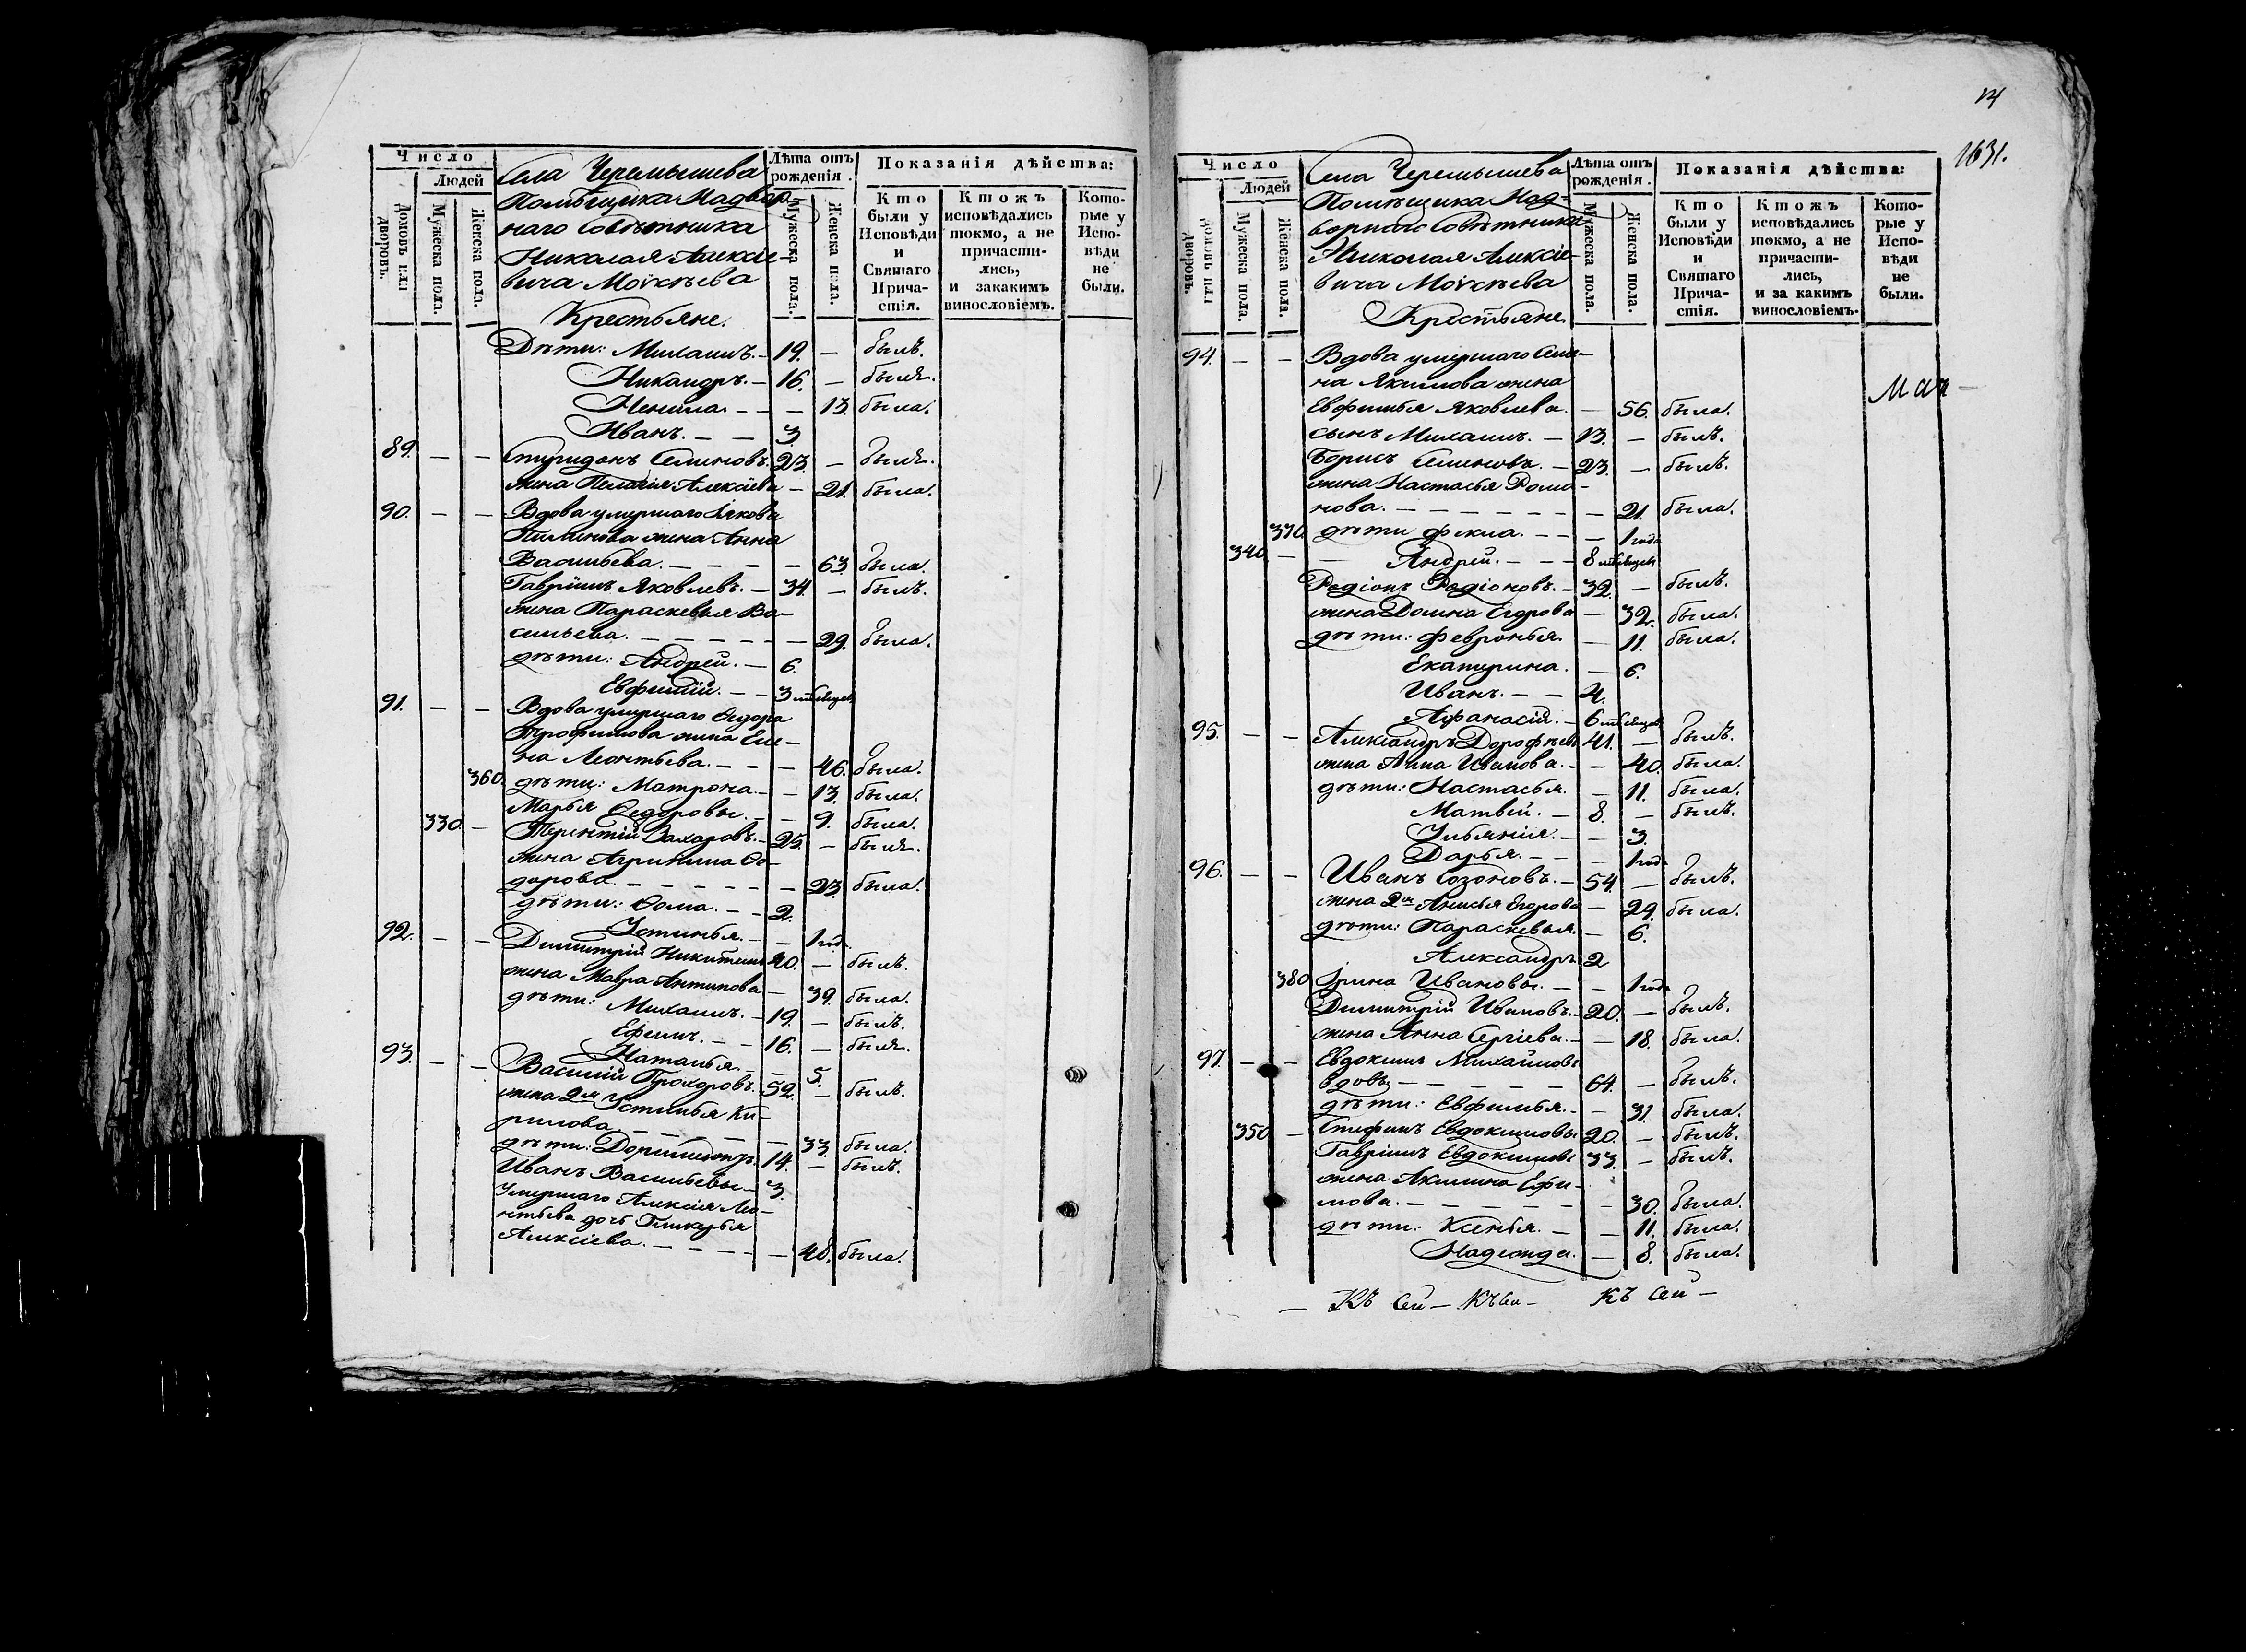 Число
Людей
Домовъ или дворовъ.
Мужеска пола.
Женска пола.
Села Черемышева
Помѣщика Надвор-
наго Совѣтника
Николая Алексіе-
вича Моисѣева
Крестьяне.
Лѣта отъ рожденія.
Мужеска пола.
Женска пола.
Показанія дѣйства:
Кто были у Исповѣди и Святаго Прича-стія.
Ктожъ исповѣдались токмо, а не причасти-лись, и закакимъ винословіемъ.
Кото-рые у Испо-вѣди не были.
Дѣти: Михаилъ. – 19. – былъ.
Никандръ. – 16. – былъ.
Ненила. – – – 13. была.
Иванъ. – – 3.
89. – – Спиридонъ Семеновъ. 23. – былъ.
жена Пелагія Алексіева – 21. была.
90. – – Вдова умершаго Іякова
Пиминова жена Анна
Васильева. – – – – – 63. была.
Гавріилъ Яковлевъ. – 34. – былъ.
жена Параскевья Ва-
сильева. – – – – – 29. была.
дѣти: Андрей. – 6.
Евфимій. – – 3 мѣсяцев
91. – – Вдова умершаго Ѳедора
Трофимова жена Еле-
на Леонтьева. – – – 46. была.
360. дѣти: Матрона. – – 13. была.
Марья Ѳедоровы. – – 9. была.
330. – Терентій Захаровъ. – 25. – былъ.
жена Агрипина Ѳе-
дорова. – – – – – 23. была.
дѣти: Ѳома. – – 2.
Устинья. – – 1 год.
92. – – Димитрій Никитинъ 40. – былъ.
жена Мавра Антипова – 39. была.
дѣти: Михаилъ. – 19. – былъ.
Ефимъ. – – 16. – былъ.
Наталья. – – 5.
93. – – Василій Прохоровъ. 52. – былъ.
жена 2я Устинья Ки-
рилова. – – – – – 33. была.
дѣти: Доримедонтъ. 14. – былъ.
Иванъ Васильевы – 3.
Умершаго Алексія Ле-
нтьева дочь Гликерья
Алексіева. – – – – – 48. была.
14
1631.
Число
Людей
Домовъ или дворовъ.
Мужеска пола.
Женска пола.
Села Черемышева
Помѣщика Над-
ворнаго Совѣтника
Николая Алексіе-
вича Моисѣева
Крестьяне.
Лѣта отъ рожденія.
Мужеска пола.
Женска пола.
Показанія дѣйства:
Кто были у Исповѣди и Святаго Прича-стія.
Ктожъ исповѣдались токмо, а не причасти-лись, и за какимъ винословіемъ.
Кото-рые у Испо-вѣди не были.
94. – – Вдова умершаго Семе-
на Якимова жена
Евфимья Яковлева. – 56. была.
сынъ Михаилъ. – 13. – былъ.
Борисъ Семеновъ. – 23. – былъ.
жена Настасья Рома-
нова. – – – – – – – 21. была.
370. дѣти Фекла. – – – 1 года
340. – – Андрей. – – – 8 мѣсяцев
Родіонъ Родіоновъ. – 32. – былъ.
жена Домна Егорова – 32. была.
дѣти: Февронья. – 11. была.
Екатерина. – 6.
Иванъ. – – 4.
Афанасій. – 6 мѣсяцев
95. – – Александръ Дорофѣевъ 41. – былъ.
жена Анна Иванова. – – 40. была.
дѣти: Настасья. – 11. была.
Матвѣй. – 8. – былъ.
Ульянія. – – 3.
Дарья. – – – 1 года
96. – – Иванъ Созоновъ. – 54. – былъ.
жена 2я Анисья Егорова – 29. была.
дѣти: Параскевья. – 6.
Александръ 2
380 Ірина Ивановы. – – 1 года
Димитрій Ивановъ. – 20. – былъ.
жена Анна Сергіева. – – 18. была.
97. – – Евдокимъ Михайловъ
вдовъ – – – – – 64. – былъ.
дѣти: Евфимья. – – 31. была.
350. – Епифанъ Евдокимовы 20. – былъ.
Гавріилъ Евдокимовъ 33. – былъ.
жена Акилина Ефи-
мова. – – – – – – 30. была.
дѣти: Ксенья. – – 11. была.
Надежда. – 8. была.
– Къ Сей – Къ Се – Къ Сей –